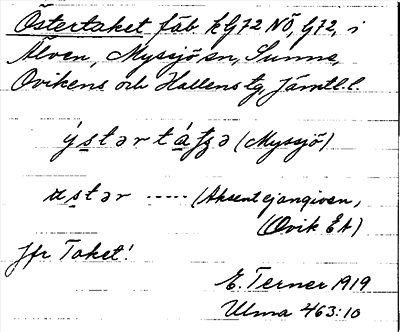 Östertaket fäb. kG72 NÖ, G72, i
Älven, Myssjö sn, Sunne,
Ovikens och Hallens tg, Jämtl.l.
(Myssjö)
----- (Aksent ej angiven,
(Ovik EA)
Jfr Taket!
E. Terner 1919
Ulma 463:10